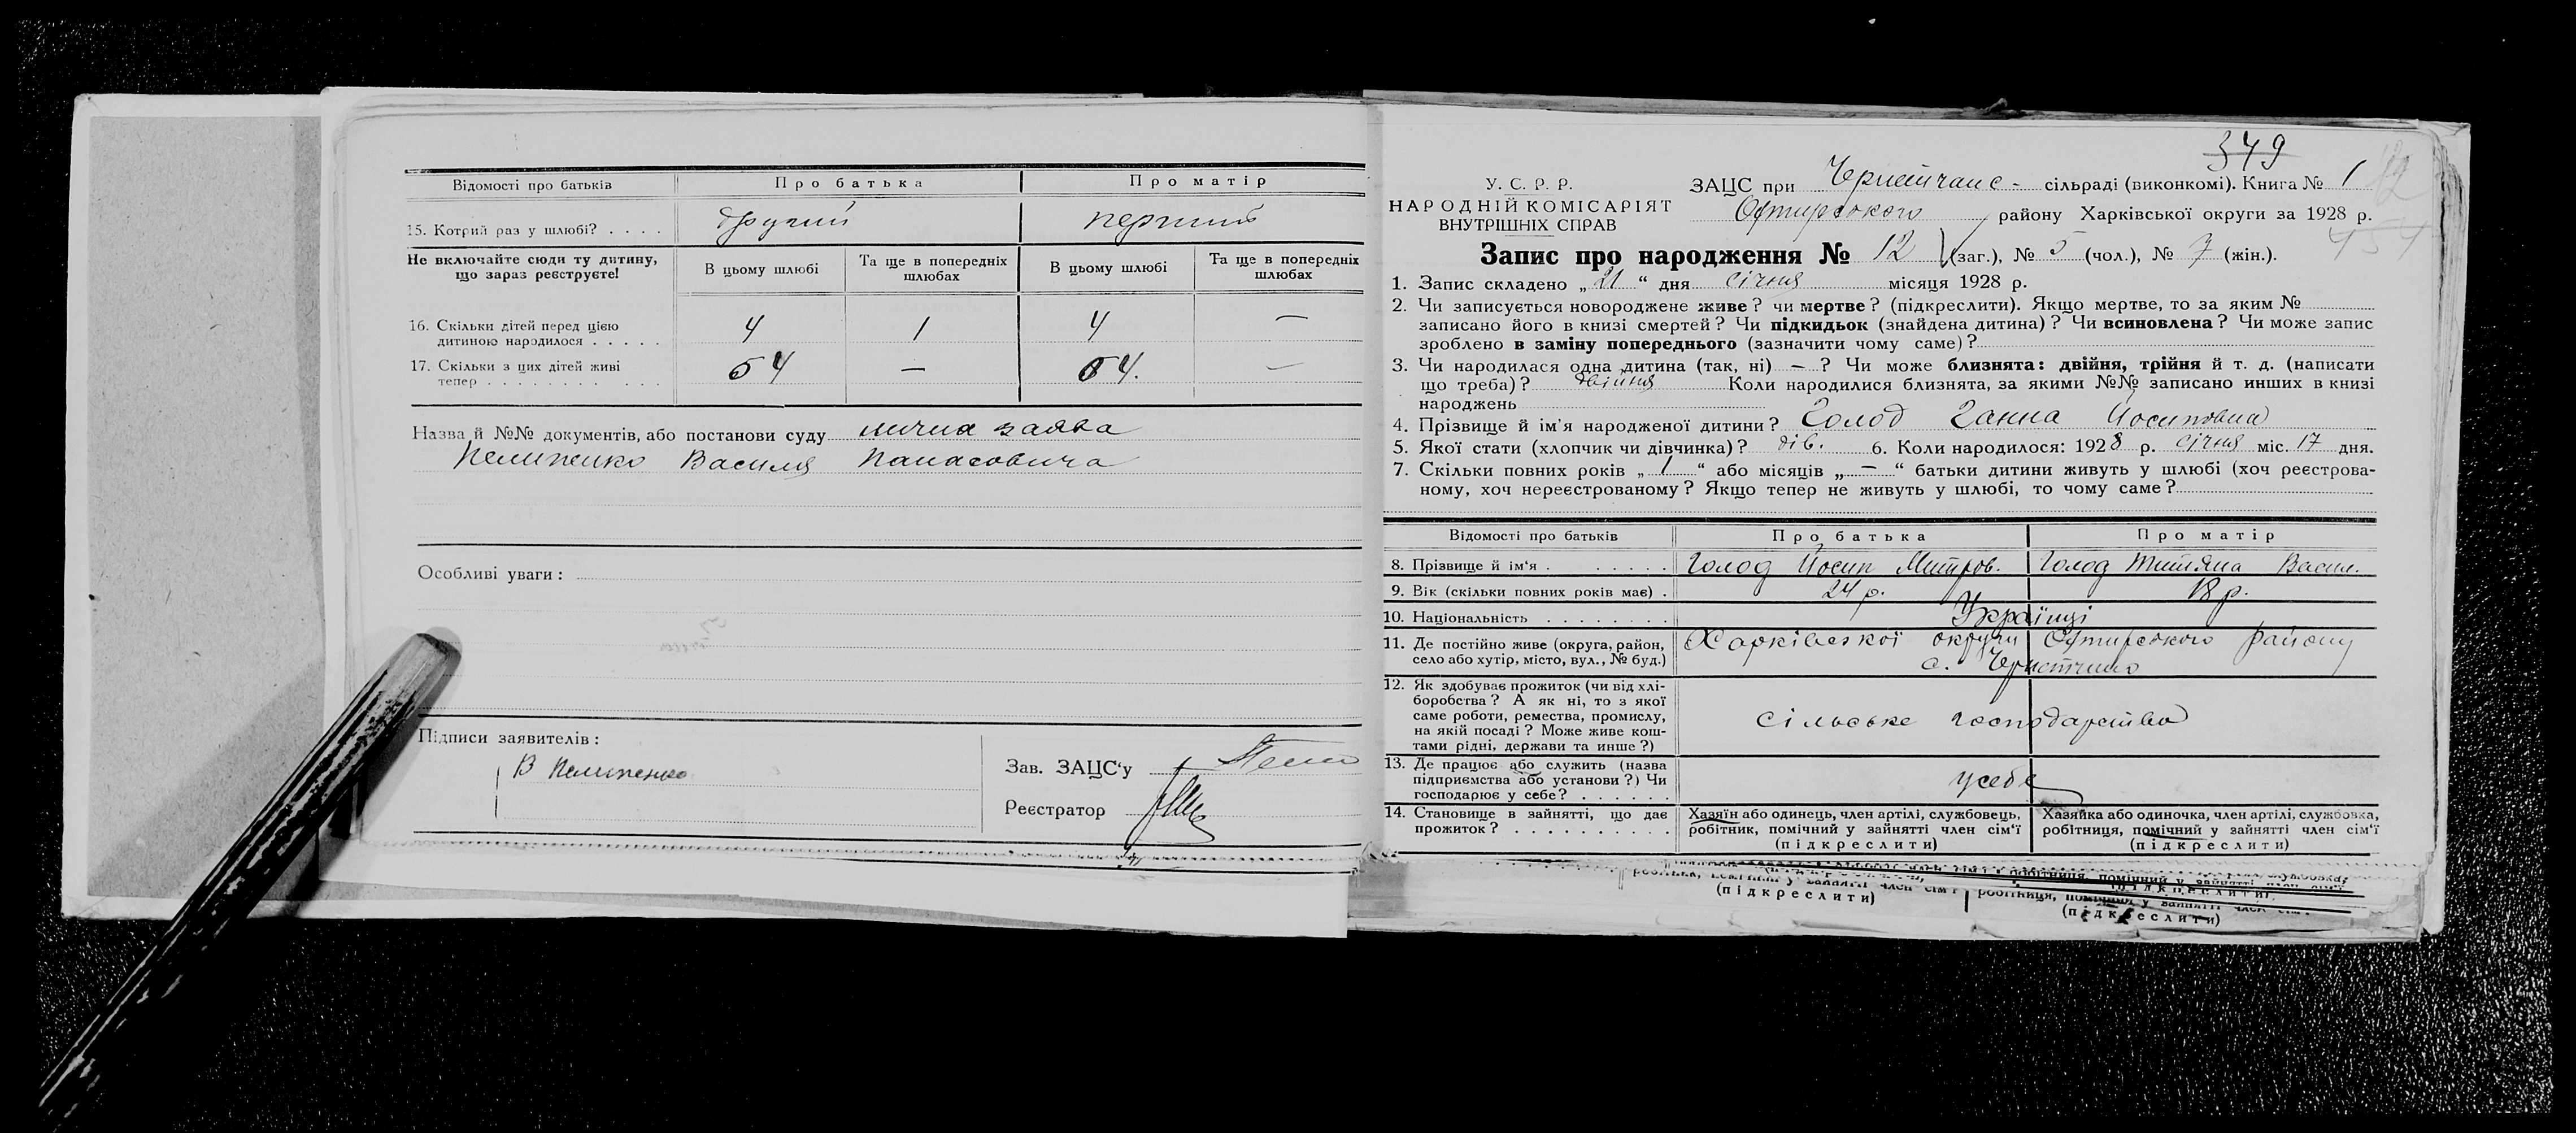 Відомості про батьків Про батька Про матір
15. Котрий раз у шлюбі? . . . . другий перший
Не включайте сюди ту дитину, що зараз реєструєте! В цьому шлюбі Та ще в попередніх шлюбах В цьому шлюбі Та ще в попередніх шлюбах
16. Скільки дітей перед цією дитиною народилося . . . . . 4 1 4 —
17. Скільки з цих дітей живі тепер . . . . . . . . . . . 4 — 4. —
Назва й №№ документів, або постанови суду лична заява
Пелипенко Василя Панасовича
Особливі уваги:
Підписи заявителів:
В Пелипенко
Зав. ЗАЦС'у
Реєстратор
349
У. С. Р. Р.
НАРОДНІЙ КОМІСАРІЯТ
ВНУТРІШНІХ СПРАВ
ЗАЦС при сільраді (виконкомі). Книга № 1
району Харківської округи за 1928 р.
Запис про народження № 12 (заг.), № 5 (чол.), № 7 (жін.).
1. Запис складено „21“ дня січня місяця 1928 р.
2. Чи записується новороджене живе? чи мертве? (підкреслити). Якщо мертве, то за яким №
записано його в книзі смертей? Чи підкидьок (знайдена дитина)? Чи всиновлена? Чи може запис
зроблено в заміну попереднього (зазначити чому саме)?
3. Чи народилася одна дитина (так, ні) — ? Чи може близнята: двійня, трійня й т. д. (написати
що треба)? двійня Коли народилися близнята, за якими №№ записано инших в книзі
народжень
4. Прізвище й ім'я народженої дитини? Голод Ганна Йосиповна
5. Якої стати (хлопчик чи дівчинка)? дів. 6. Коли народилося: 1928 р. січня міс. 17 дня.
7. Скільки повних років „1“ або місяців „—“ батьки дитини живуть у шлюбі (хоч реєстрова-
ному, хоч нереєстрованому? Якщо тепер не живуть у шлюбі, то чому саме?
Відомості про батьків Про батька Про матір
8. Прізвище й ім'я . . . . . . Голод Йосип Митров. Голод Титяна Васил.
9. Вік (скільки повних років має) . 24 р. 18 р.
10. Національність . . . . . . . . Українці
11. Де постійно живе (округа, район, Харківської округи Охтирського району
село або хутір, місто, вул., № буд.) с.
12. Як здобуває прожиток (чи від хлі-
боробства? А як ні, то з якої
саме роботи, ремества, промислу, сільське господарство
на якій посаді? Може живе кош-
тами рідні, держави та инше?)
13. Де працює або служить (назва
підприємства або установи?) Чи у себе
господарює у себе? . . . . . .
14. Становище в зайнятті, що дає Хазяїн або одинець, член артілі, службовець, Хазяйка або одиночка, член артілі, службовка,
прожиток? . . . . . . . . . . робітник, помічний у зайнятті член сім'ї робітниця, помічний у зайнятті член сім'ї
(підкреслити) (підкреслити)
(підкреслити) (підкреслити)